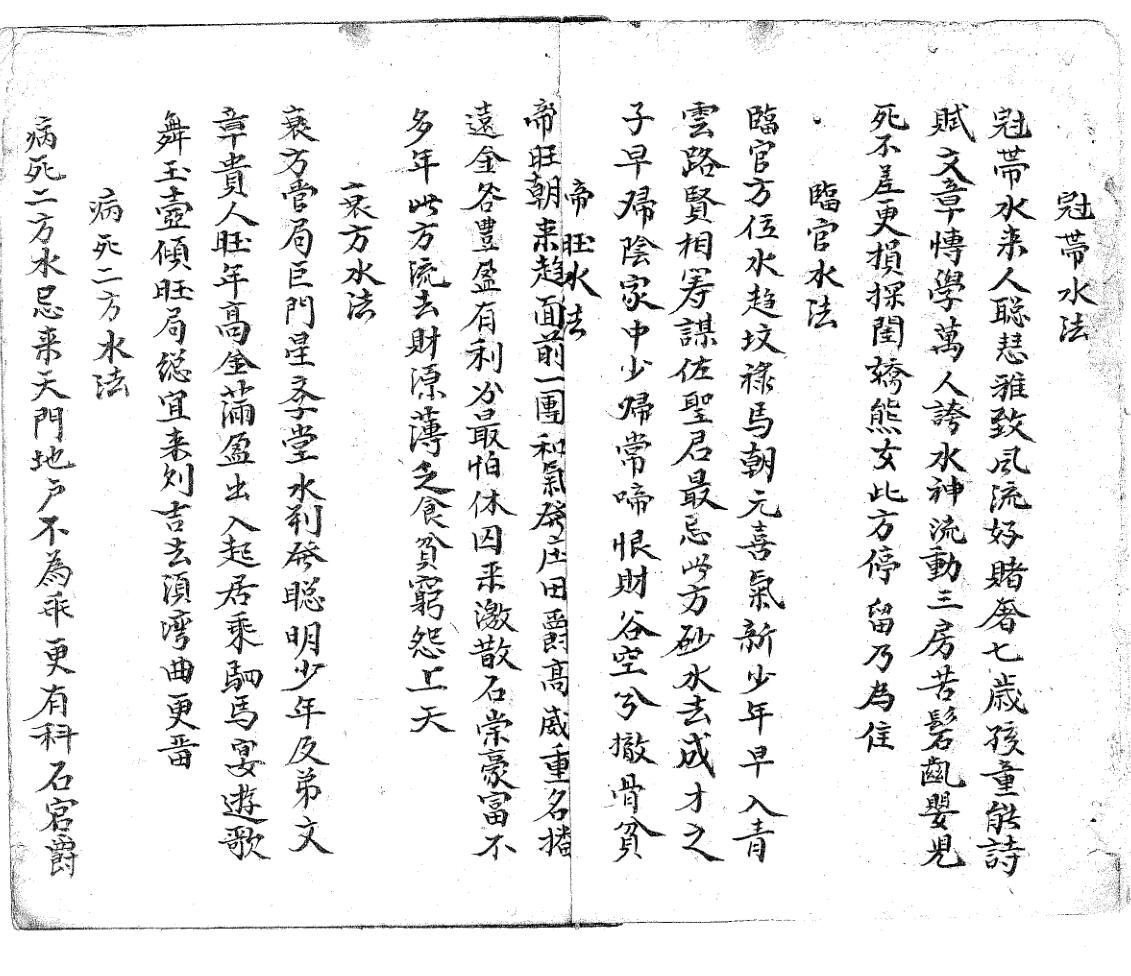 冠帶水法
冠帶水来人聡慧雅致風流好賭奢七歳孩童能詩
賦文章愽學萬人誇水神流動三房苦髫齓嬰児
死不差更損探閨嬌熊女此方停留乃為佳
臨官水法
臨官方位水趋坟祿馬朝元喜氣新少年早入青
雲路賢相籌謀佐聖君最忌此方砂水去成才之
子早歸陰家中少婦常啼恨財谷空兮撤骨貧
帝旺水法
帝旺朝来趋面前一團和氣發庄田爵髙威重名播
遠金谷豐盈有利㕣最怕休囚来激散石崇豪富不
多年此方流去財源薄乏食貧窮怨上天
衰方水法
衰方管局巨門星孝堂水到發聡明少年及弟文
章貴人旺年髙金滿盈出入起居乘駟馬宴遊歌
舞玉壼傾旺局総宜来則吉去湏湾曲更
病死二方水法
病死二方水忌来天門地户不為乖更有科石宕爵